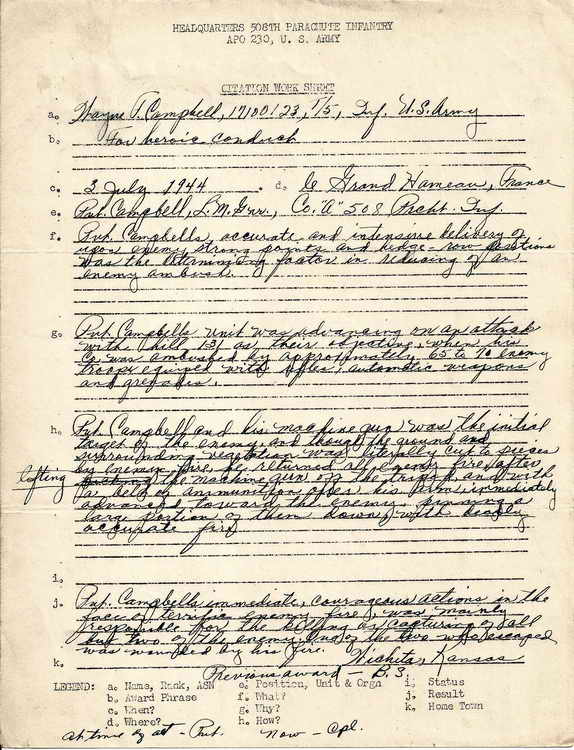 HEADQUARTERS 508TH PARACHUTE INFANTRY
APO 230, U. S. ARMY
CITATION WORK SHEET
a. Wayne T. Campbell, 17100123, T/5, Inf. U.S. Army
b. For heroic conduct
c. 3 July 1944 . d. le Grand Hameau, France
e. Pvt. Campbell, L.M.Gnr., Co. "A" 508 Prcht. Inf.
f. Pvt. Campbells, accurate and intensive delivery of
upon enemy strong points and hedge-row positions
was the determining factor in reducing of an
enemy ambush.
g. Pvt. Campbells unit was advancing on an attack
with hill 131 as their objective, when his
Co was ambushed by approximately 65 to 70 enemy
troops equiped with rifles, automatic weapons
and grenades.
h. Pvt. Campbell and his machine gun was the initial
target of the enemy, and though the ground and
surrounding vegetation was literally cut to pieces
by enemy fire, he returned all enemy fire after
lofting the machine gun off the tripod and with
a belt of ammunition over his arm immediately
advanced toward the enemy, mowing a
large portion of them down, with deadly
accurate fire
i.
j. Pvt. Campbells immediate, courageous actions in the
face of terrific enemy fire, was mainly
responsible for the killing or capturing of all
but two of the enemy, and of the two who escaped
was wounded by his fire.
k. Wichita, Kansas
Previous award — B.S.
LEGEND: a. Name, Rank, ASN e. Position, Unit & Orgn i. Status
b. Award Phrase f. What? j. Result
c. When? g. Why? k. Home Town
d. Where? h. How?
At time of act - Pvt. Now - Cpl.